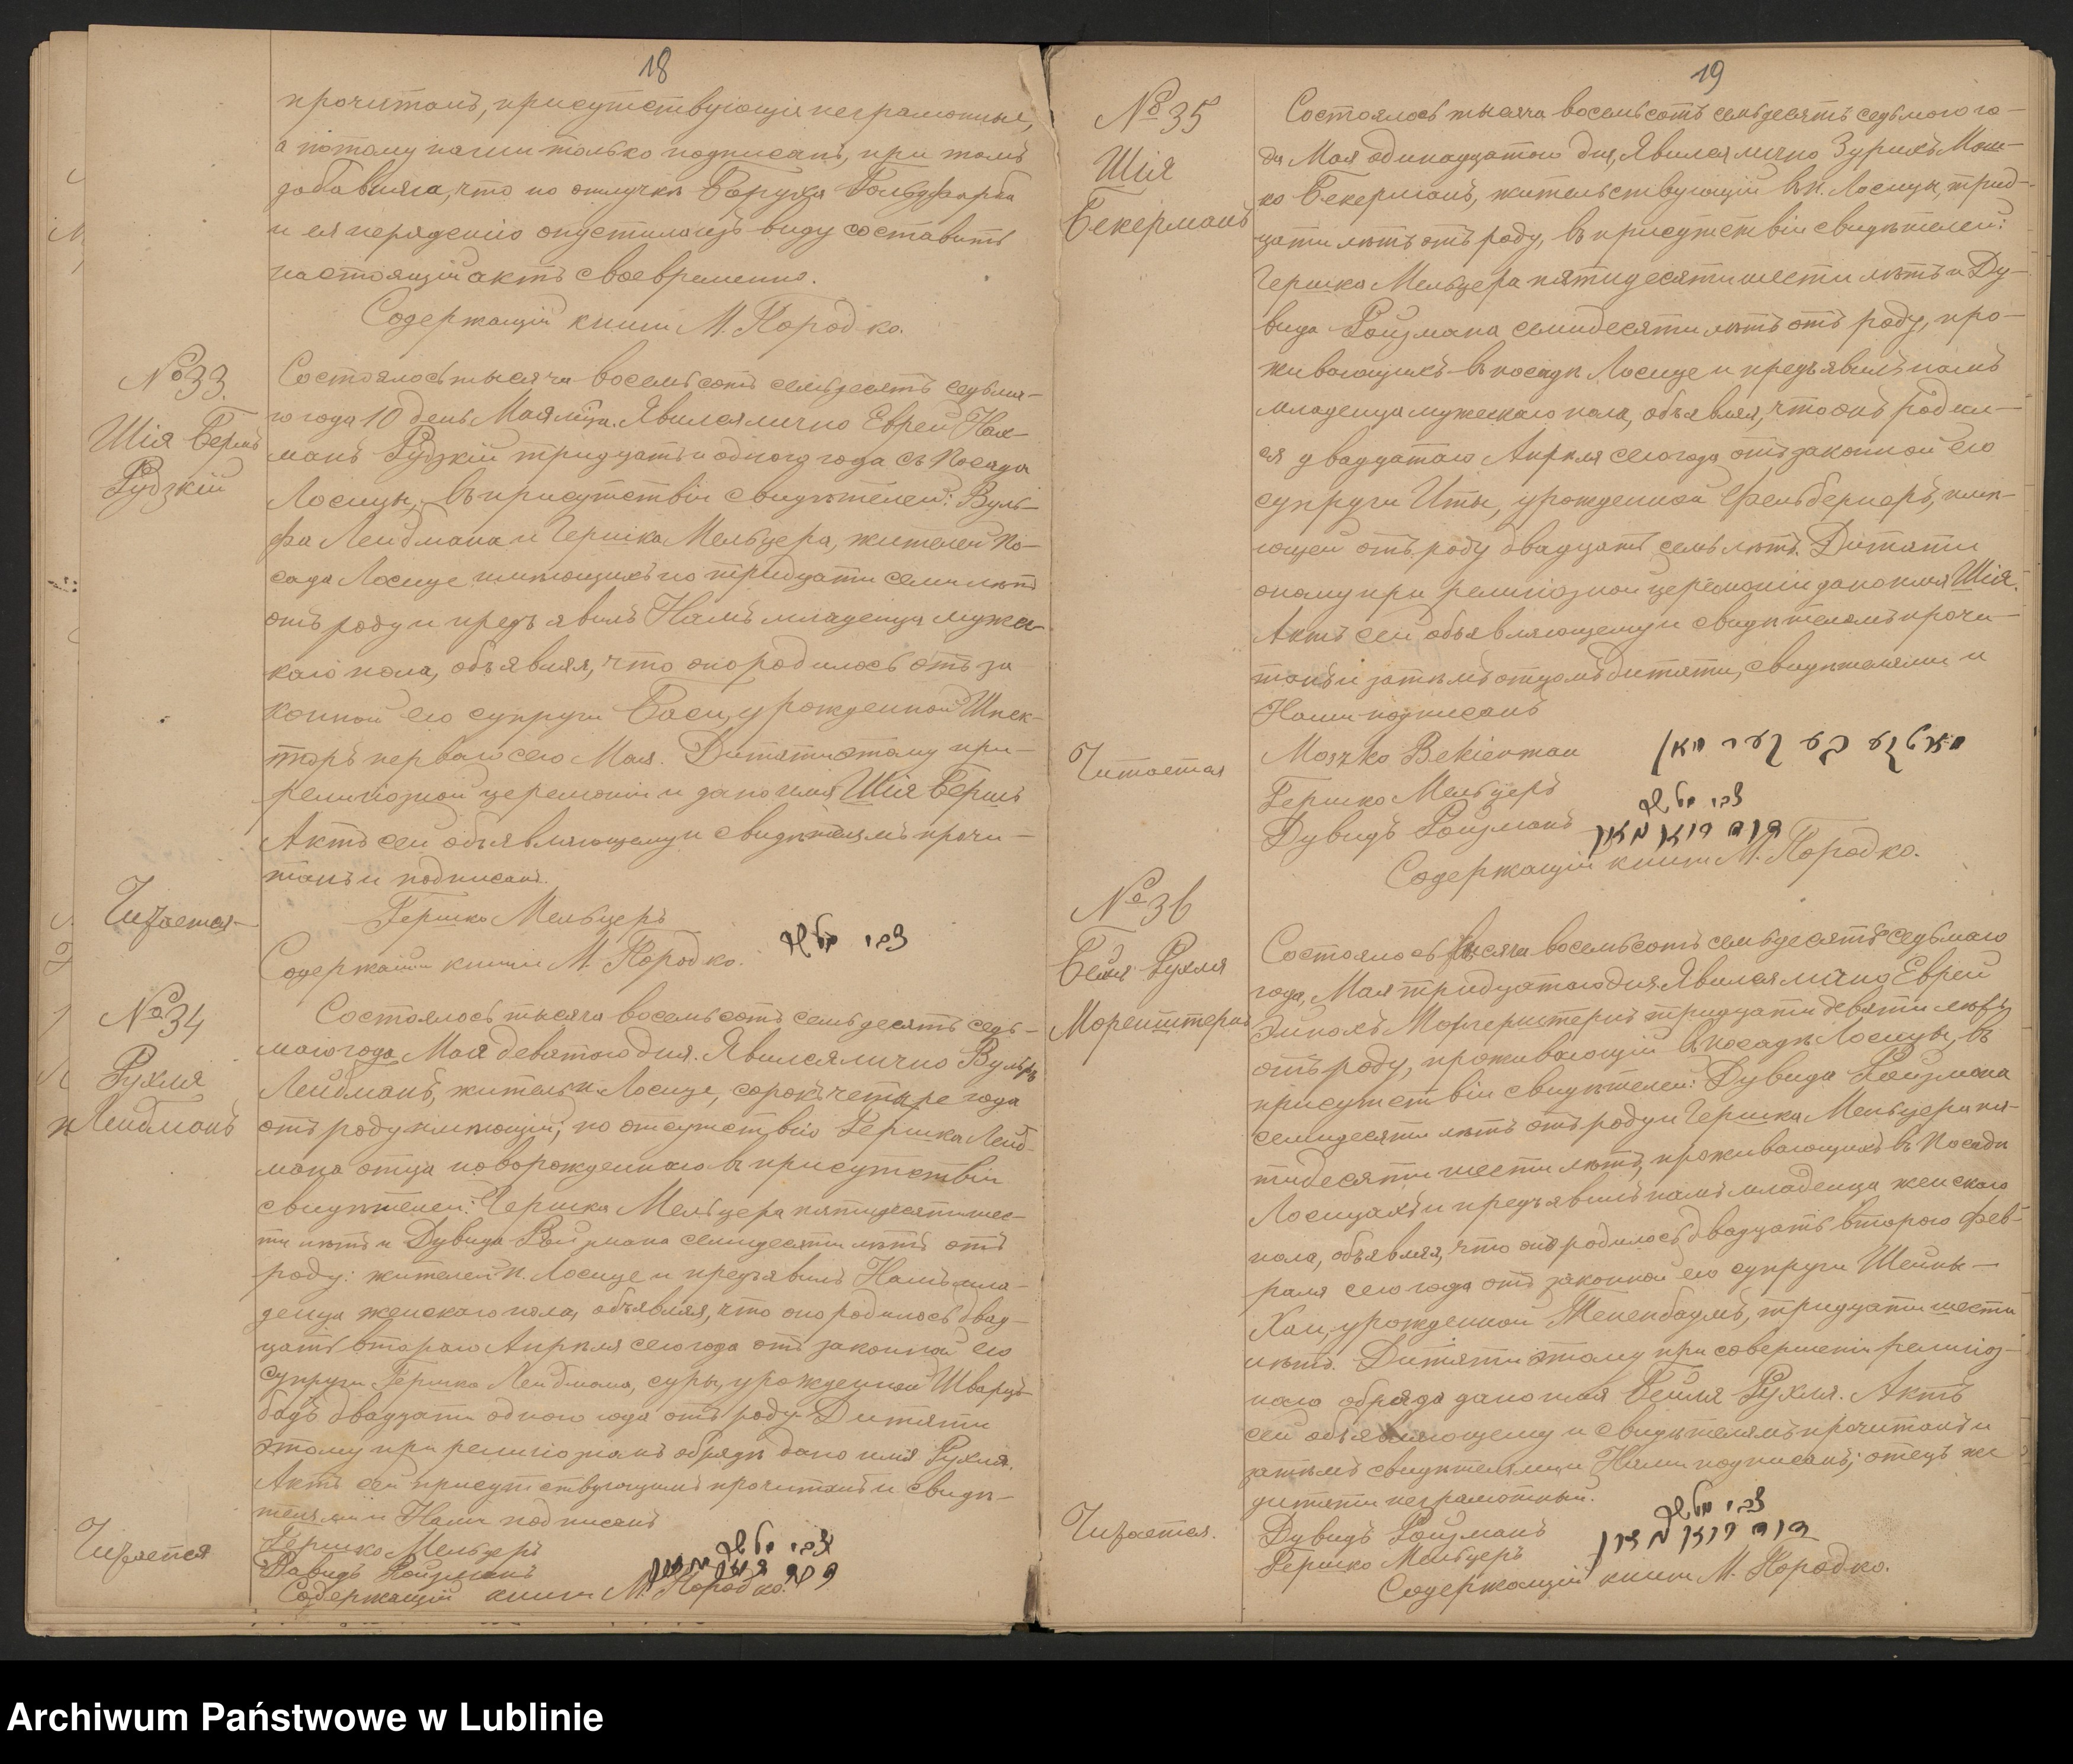 18
прочитанъ, присутствующія неграмотные,
а потому нами только подписанъ, при томъ
добавляя, что по отлучкѣ Баруха Гольдфарба
и ея нерядению опустилъ виду составить
настоящій актъ своевременно.
Содержащій книги М. Породко.
№ 33.
Шія Бершъ
Рудзкій
Состоялось тысяча восемьсотъ семьдесятъ седьма-
го года 10 день Мая мѣца. Явился лично Еврей Нах-
манъ Рудзкій тридцать и одного года съ Посада
Лосицы, въ присутствіи свидѣтелей: Вуль-
фа Лейдмана и Гершка Мельцера, жителей По-
сада Лосице имѣющихъ по тридцати семи лѣтъ
отъ роду и предъявилъ Намъ младенца мужес-
каго пола, объявляя, что оно родилось отъ за
конной его супруги Баси, урожденной Шпек-
торъ перваго сего Мая. Дитяти этому при
религіозной церемоніи и дано имя Шія Бершъ
Актъ сей объявляющему и свидѣтелямъ прочи-
танъ и подписанъ.
Читается
Гершко Мельцеръ
צבי מלצר
Содержащій книги М. Породко.
№ 34
Рухля
Лейдманъ
Состоялось тысяча восемьсотъ семьдесятъ седь-
маго года Мая деватого дня. Явился лично Вульфъ
Лейдманъ, житель п. Лосице, сорокъ четыре года
отъ роду имѣющій; по отсутствію Гершка Лейд-
мана отца новорожденнаго въ присутствіи
свидѣтелей: Гершка Мельцера пятидесяти шес-
ти лѣтъ и Дувида Ройзмана семидесяти лѣтъ отъ
роду: жителей п. Лосице и предъявилъ Намъ мла-
денца женскаго пола, объявляя, что оно родилось двад-
цать втораго Апрѣля сего года отъ законной его
супруги Гершко Лейдмана, суры, урожденной Шварцъ-
бадъ двадцати одного года отъ роду. Дитяти
этому при религіозномъ обрядѣ дано имя Рухля.
Актъ сей присутствующимъ прочитанъ и свидѣ-
телями и Нами подписанъ
Читается
Гершко Мельцеръ
צבי מלצר
Давидъ Ройзманъ
דוד רויזמאן
Содержащій книги М. Породко.
19
№ 35
Шія
Бекерманъ
Состоялось тысяча восемьсотъ семьдесятъ седьмого го-
да Мая одинадцатого дня, Явился лично Зурихъ Мош-
ко Бекерманъ, жительствующій въ п. Лосицы, трид-
цати лѣтъ отъ роду, въ присутствіи свидѣтелей:
Гершка Мельцера пятидесяти шести лѣтъ и Ду-
вида Ройзмана семидесяти лѣтъ отъ роду, про-
живающихъ въ посадѣ Лосице и предъявилъ намъ
младенца мужескаго пола, объявляя, что онъ родил-
ся двадцатаго Апрѣля сего года отъ законной его
супруги Иты, урожденной Фельбернеръ, имѣ-
ющей отъ роду двадцать семь лѣтъ. Дитяти
оному при религіозной церемоніи дано имя Шія.
Актъ сей объявляющему и свидѣтелямъ прочи-
танъ и затѣмъ отцомъ дитяти, свидѣтелями и
Нами подписанъ
Читается
Moszko Bekierman
Гершко Мельцеръ
צבי מלצר
Дувидъ Ройзманъ
דוד רויזמאן
Содержащій книги М. Породко.
№ 36
Бейля Рухля
Моренштернъ
Состоялось тысяча восемьсотъ семьдесятъ седьмаго
года, Мая тридцатаго дня. Явился лично Еврей
Эйнохъ Моргенштернъ тридцати девяти лѣтъ
отъ роду, проживающій въ посадѣ Лосицы, въ
присутствіи свидѣтелей: Дувида Ройзмана
семидесяти лѣтъ отъ роду и Гершка Мельцера пя-
тидесяти шести лѣтъ, проживающихъ въ Посадѣ
Лосицахъ и предъявилъ намъ младенца женскаго
пола, объявляя, что оно родилось двадцать второго Фев-
раля сего года отъ законной его супруги Шейны-
Хаи, урожденной Тененбаумъ, тридцати шести
лѣтъ. Дитяти этому при совершеніи религіоз-
наго обряда дано имя Бейля Рухля. Актъ
сей объявляющему и свидѣтелямъ прочитанъ и
затѣмъ свидѣтелями и Нами подписанъ; отецъ же
дитяти неграмотный.
Читается.
Дувидъ Ройзманъ
צבי מלצר
Гершко Мельцеръ
דוד רויזמאן
Содержащій книги М. Породко.
Archiwum Państwowe w Lublinie